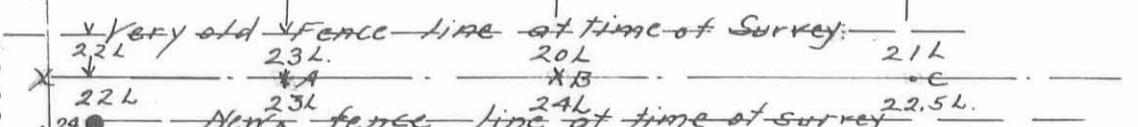 Very old Fence line at time of Survey.
22L 23L. 20L 21L
X A X B C
22L 23L 24L 22.5L.
24 New fence line at time of survey